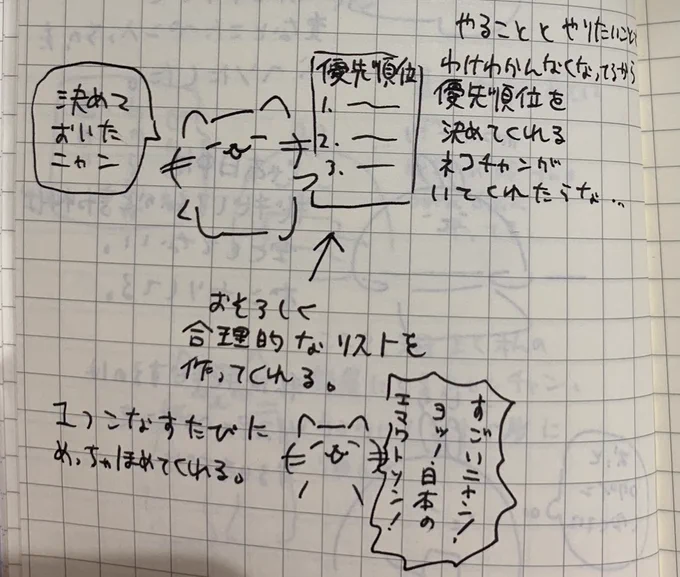 やることとやりたいことが
わけわかんなくなってるから
優先順位を
決めてくれる
ネコチャンが
いてくれたらな…
決めて
おいた
ニャン
優先順位
1.
2.
3.
おそろしく
合理的なリストを
作ってくれる。
1つこなすたびに
めっちゃほめてくれる。
すごいニャン!
ヨッ!日本の
エマワトソン!